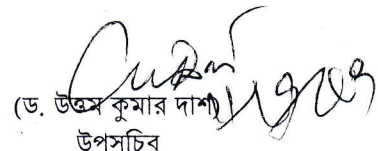 (ড. উত্তম কুমার দাশ)
উপসচিব